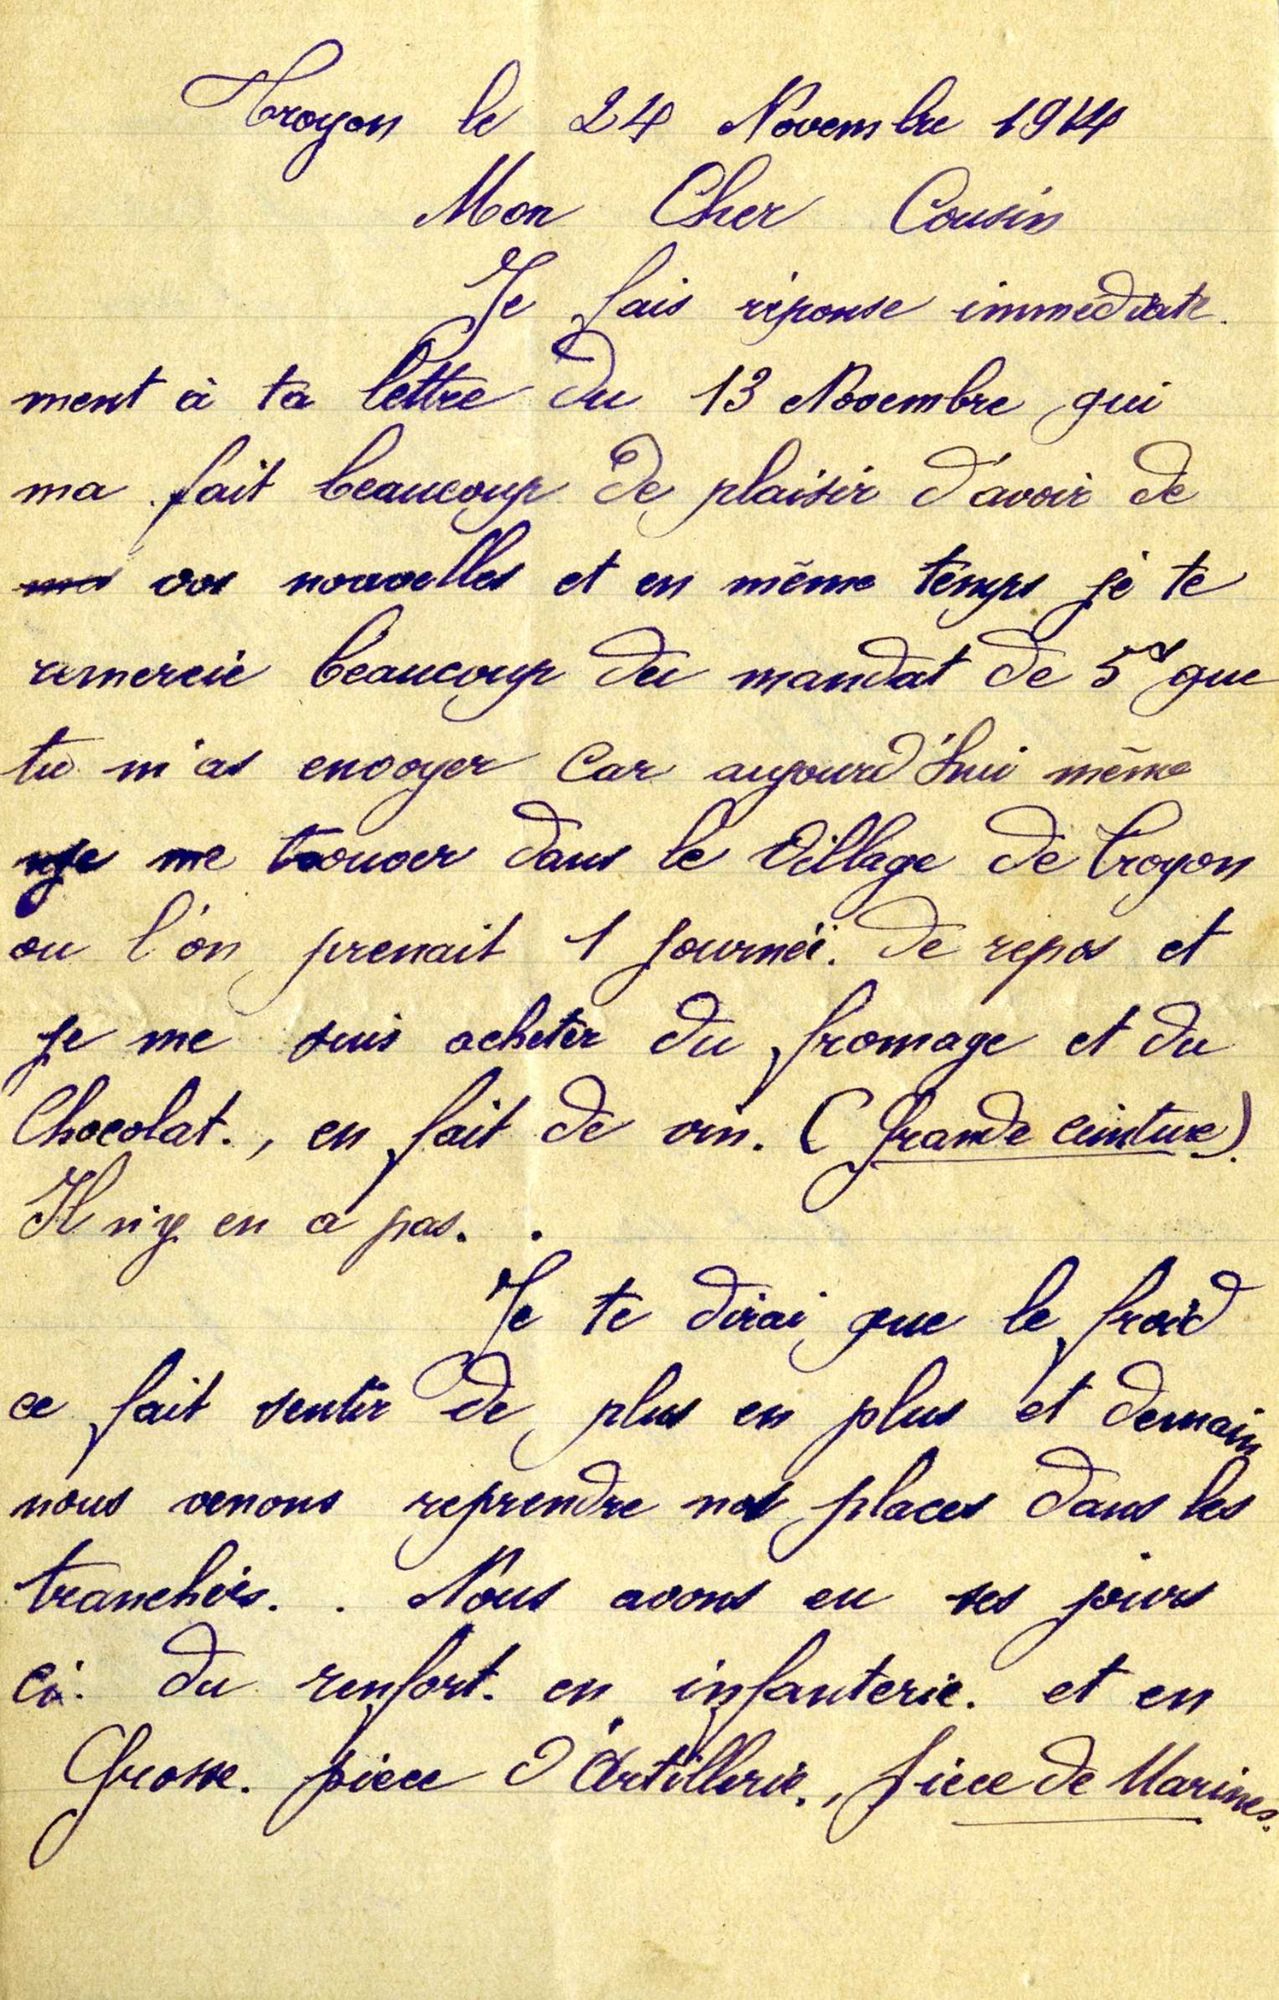 Troyon le 24 Novembre 1914
Mon Cher Cousin
Je fais réponse immédiate.
ment à ta lettre du 13 Novembre qui
ma fait beaucoup de plaisir d'avoir de
vos nouvelles et en même temps je te
remercie beaucoup du mandat de 5 que
tu m'as envoyer car aujourd'hui même
je me trouver dans le village de Troyon
ou l'on prenait 1 journée. de repos et
je me suis acheter du fromage et du
Chocolat., en fait de vin. (Grande ceinture).
Il n'y en a pas. .
Je te dirai que le froid
ce fait sentir de plus en plus et demain
nous venons reprendre nos places dans les
tranchées. . Nous avons eu ses jours
ci. du renfort. en infanterie. et en
Grosse. pièce d'Artillerie., pièce de Marines.